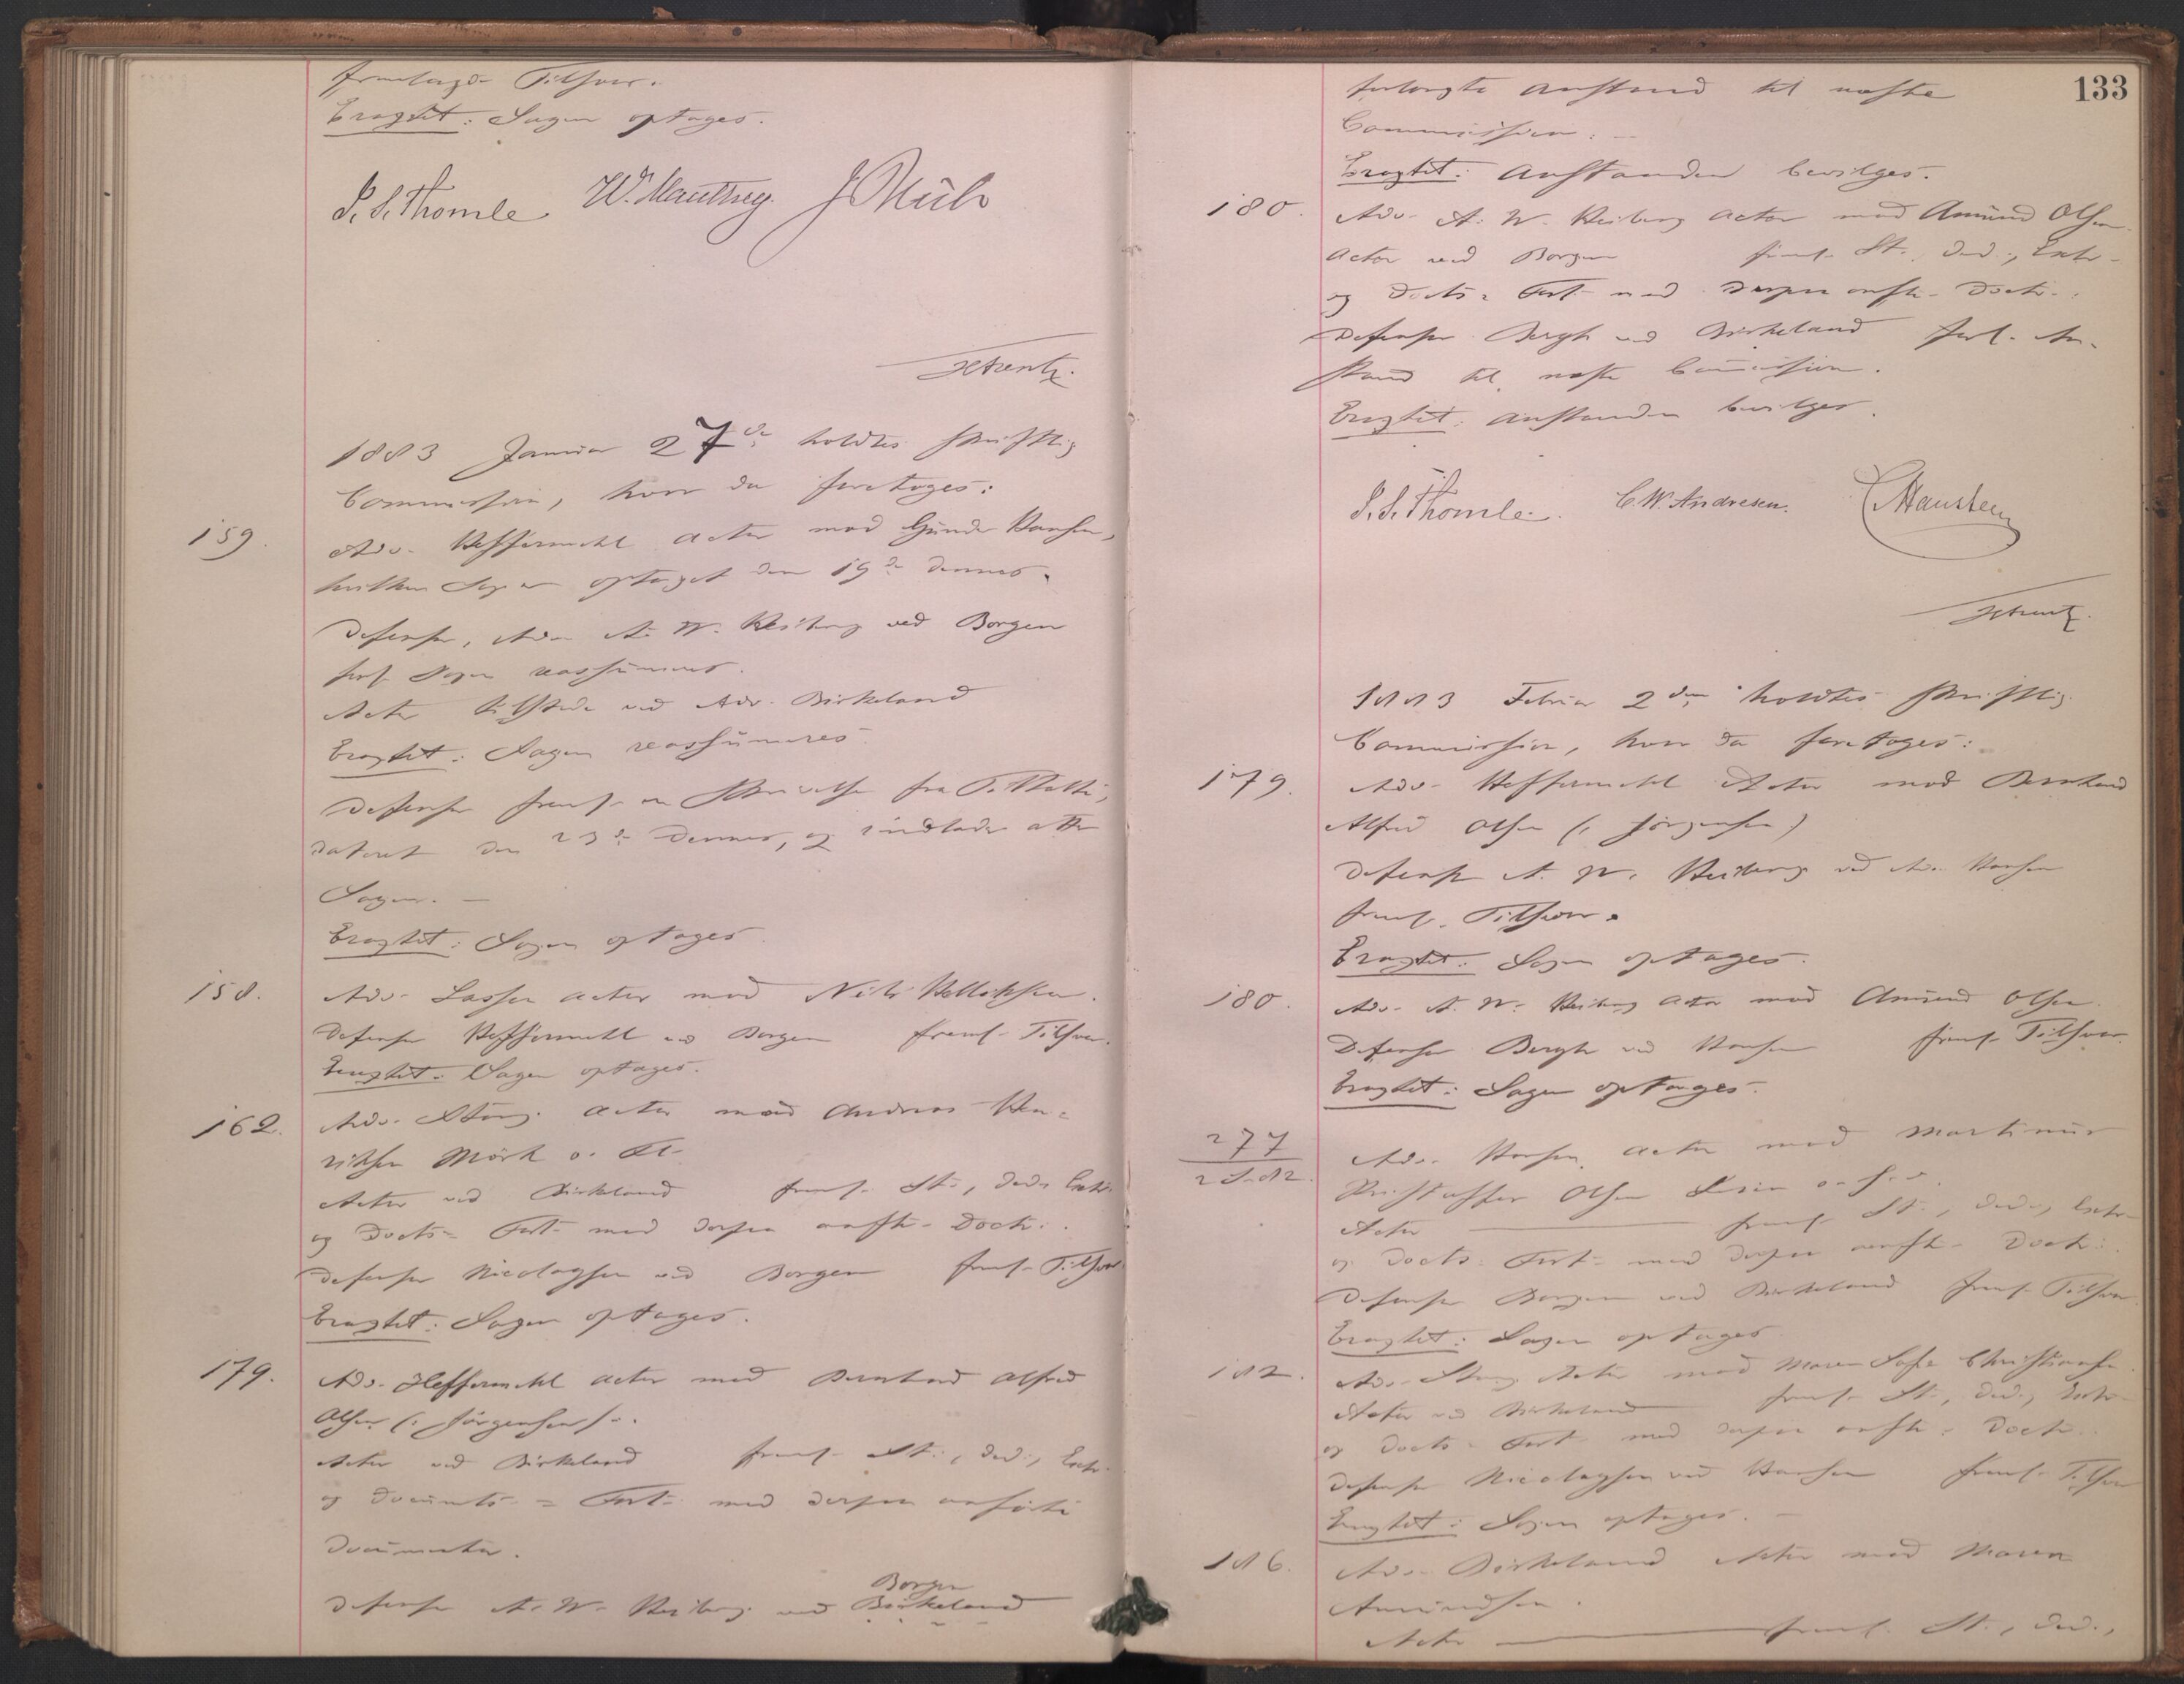 fremlagde Tilsvar.
Eragtet: Sagen optages.
S. S. Thomle W. Mautheg. J Muth
Hrentz.
1883 Januar 27de holdtes skriftlig
Commission, hvor da foretoges:
159. Adv. Heffermehl Actor mod Gunder Hansen,
hvilken Sag er optaget den 19de dennes.
Defensor, Adv. A. W. Heiberg ved Borgen
Sagen reassumeret.
Actor tilstede ved Adv. Birkeland
Eragtet: Sagen reassumeres.
Defensor freml. en Skrivelse fra
dateret den 23de dennes, og indlader atter
Sagen. —
Eragtet: Sagen optages.
158. Adv. Lasson Actor mod Nils Kolliksen.
Defensor Heffermehl ved Borgen freml. Tilsvar.
Eragtet: Sagen optages.
162. Adv. Stang Actor mod Andreas Hen-
riksen Mörk o. Fl.
Actor ved Birkeland freml. St., Ded., Extr.
og Docts = Fort. med derpaa anfte. Doctr.
Defensor Nicolaysen ved Borgen freml. Tilsvar
Eragtet: Sagen optages.
179. Adv. Heffermehl Actor mod Bernhard Alfred
Olsen (: Jörgensen :).
Actor ved Birkeland freml. St., Ded., Extr.
og Documts = Fort. med derpaa anførte
Documenter.
Defensor A. W. Heiberg ved Borgen Birkeland
133
forlangte Anstand til næste
Commission. —
Eragtet: Anstanden bevilges.
180. Adv. A. W. Heiberg Actor mod Amund Olsen.
Actor ved Borgen freml. St., Ded., Extr.
og Docts = Fort. med derpaa anfte. Doctr.
Defensor Bergh ved Birkeland forl. An-
stand til næste Commission.
Eragtet: Anstanden bevilges.
S. S. Thomle. C. W. Andresen. C Hansteen
Hrentz.
1883 Februar 2den holdtes skriftlig
Commission, hvor da foretoges:
179. Adv. Heffermehl Actor mod Bernhard
Alfred Olsen (: Jörgensen)
Defensor A. W. Heiberg ved Adv. Hansen
freml. Tilsvar.
Eragtet: Sagen optages.
180. Adv. A. W. Heiberg Actor mod Amund Olsen.
Defensor Bergh ved Hansen freml. Tilsvar.
Eragtet: Sagen optages.
277 Adv. Hansen Actor mod Martinus
Kristoffer Olsen
Actor — freml. St., Ded., Extr.
og Docts = Fort. med derpaa anfte. Doctr.
Defensor Borgen ved Birkeland freml. Tilsvar.
Eragtet: Sagen optages
182. Adv. Stang Actor mod Maren Sofie Christiansen.
Actor ved Birkeland freml. St., Ded., Extr.
og Docts = Fort. med derpaa anfte. Doctr.
Defensor Nicolaysen ved Hansen freml. Tilsvar
Eragtet: Sagen optages. —
186. Adv. Birkeland Actor mod Maren
Amundsen.
Actor — freml. St., Ded.,